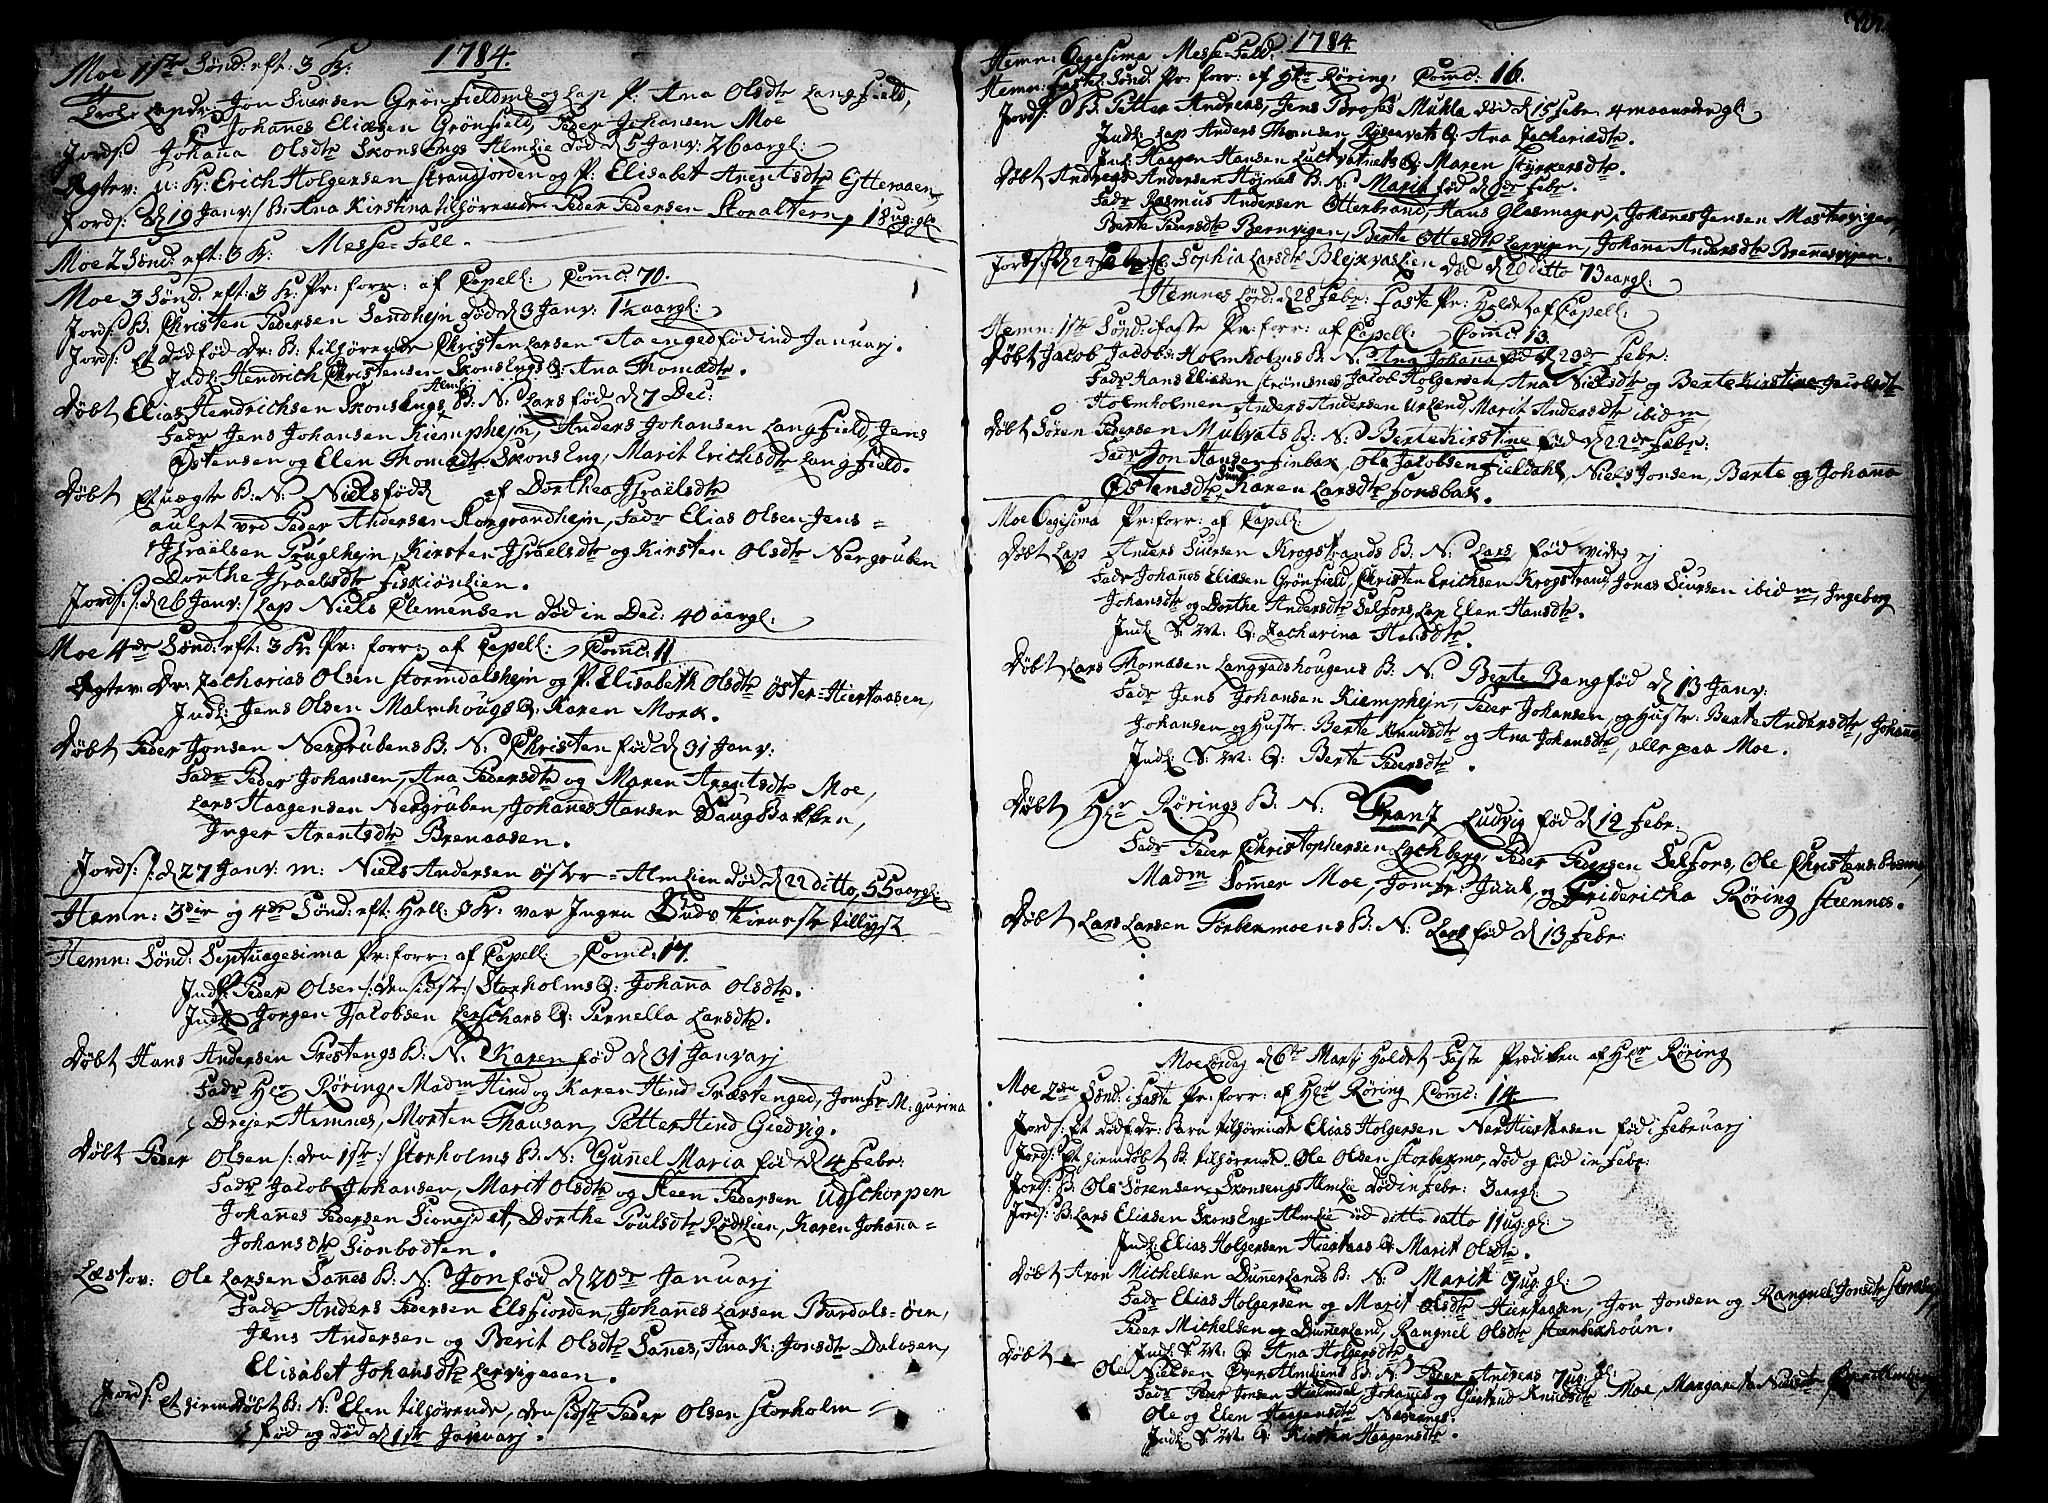 Moe 1ste Sønd: eft: 3 K: 1784.
Lapdr: Jon Siursen Grønfieldms og Lap P: Ana Olsdtr Langfield,
Johannes Eliæsen Grønfield, Peder Johansen Moe
Jords: P: Johana Olsdtr SkonsEngs Almlie død d 5 Janv: 26 aargl:
Ægtev: u: K: Erich Holgersen Strandjorden og P: Elisabet Arentsdtr Ytteraaen
Jords: d 19 Janv: /: B: Ana Kirstina tilhørende Peder Pedersen Storaltern, 1 Sug: gl:
Moe 2 Sønd: eft: 3 K: Messe-Fall.
Moe 3 Sønd: eft: 3 K: Pr: forr: af Capell: Comc: 70.
Jords: B: Christen Pedersen Sandhejn død d 3 Janv: 1½ aargl:
Jords: Et dødfød Dr: B: tilhørende Christen Larsen Aaenged fød ind Januarj.
Indl: Hendrich Christensen SkonsEngs Q: Ana Thomædtr.
Døbt Elias Hendrichsen SkonsEngs Almlie B: N: Lars fød d 7 Dec:
Fadr Jens Johansen Kiemphejn, Anders Johansen Langfield, Jens
Østensen og Elen Thomædtr SkonsEng, Marit Erichsdtr Langfield.
Døbt Et uægte B: N: Niels fødd af Dorthea Jsraëlsdtr
aulet ved Peder Andersen Kongrandhejn, Fadr Elias Olsen Jens
Jsraëlsen Pruglhejn, Kirsten Jsraelsdtr og Kirsten Olsdtr Nergruben
Dorthe Jsraelsdtr Fiskiønlien.
Jords: /: d 26 Janv: / Lap Niels Clemensen død in Dec: 40 aargl:
Moe 4de Sønd: eft: 3 K: Pr: forr: af Capell: Comc: 11
Ægtev: Dr: Zacharias Olsen Stormdalshejn og P: Elisabeth Olsdtr Øster-Hiertaasen,
Indl: Jens Olsen Malmhougs Q: Karen Mork.
Døbt Peder Jonsen Nergrubens B: N: Christen fød d 31 Janv:
Fadr Peder Johansen, Ana Pedersdtr og Maren Arentsdtr Moe,
Lars Haagensen Nergruben, Johanes Hansen DaugBakken,
Inger Arentsdtr Brenaasen.
Jords: /: d 27 Janv: m: Niels Andersen Øster-Almlien død d 22 ditto, 55 aargl:
Hemn: 3die og 4de Sønd: eft: Hell: 3 K: var Ingen Guds Tieneste tillyst
Hemn: Sønd: Septuagesima Pr: forr: af Capell: Comc: 17.
Indl: Peder Olsen /: den sidste:/ Storholms Q: Johana Olsdtr.
Indl: Jørgen Jacobsen Q: Pernella Larsdtr.
Døbt Hans Andersen Prestengs B: N: Karen fød d 31 Januarj
Fadr Her Røring, Madm Hind og Karen Hind Præstenged, Jomfr M: gurina
Drejer Hemnes, Morten Thausan, Petter Hind Giedvig.
Døbt Peder Olsen /: den 1ste:/ Storholms B: N: Gunnel Maria fød d 4 Febr:
Fadr Jacob Johansen, Marit Olsdtr og Steen Pedersen UdSchorpen
Johannes Pedersen Dorthe Poulsdtr Rødlien, Karen Johana
Johansdtr Sionbodten.
Læstov: Ole Larsen Sannes B: N: Jon fød d 20de Januarj
Fadr Anders Pedersen Elsfiorden, Johannes Larsen Bardals-øen,
Jens Andersen og Berit Olsdtr Sannes, Ana K: Jonsdtr Dalosen,
Elisabet Johansdtr Lervigaaen.
Jords: Et hiemdøbt B: N: Elen tilhørende, den sidste Peder Olsen Storholm
fød og død d 1ste Januarj.
1784.
Hemn: Sexgesima Messe-Fald.
Hemn: Faste Sønd: Pr: forr: af Her Røring, Comc: 16.
Jords: B: Petter Andreas, Jens Broses Mulia død d 15 Febr: 4 maaneder gl:
Indl: Lap Anders Thomsen Q: Ana Zachariædtr.
Ind: Haagen Hansen Q: Maren Styrkersdtr.
Døbt Andreas Andersen Højnes B: N: Marit fød d 6de Febr.
Fadr Rasmus Andersen Otterbrand, Hans Glasmager, Johanes Jensen Mastervigen
Berte Pedersdtr Bernvigen, Berte Ottesdtr Lervigen, Johana Andersdtr Brenesvigen.
Jords: d 24 Febr: /: Sophia Larsdtr død d 20 ditto 73 aargl:
Hemnes Lørd: d 28 Febr: Faste Pr: Holdet af Capell:
Hemn: 1ste Sønd: i faste Pr: forr: af Capell: Comc: 13.
Døbt Jacob Jacobs: Holmholms B: N: Ana Johana fød d 23de Febr:
Fadr Hans Eliæsen Strømsnes, Jacob Holgersen, Ana Nielsdtr og Berte Kirstine Jacobsdtr
Holmholmen, Anders Andersen Urland, Marit Andersdtr ibidm,
Døbt Søren Pedersen Mulvats B: N: Berte Kirstine fød d 22de Febr:
Fadr Jon Hansen Finbak, Ole Jacobsen Fieldahl, Niels Jonsen, Berte og Johana
Østensdtr Sund, Karen Larsdtr Fonsbak.
Moe Sexagesima Pr: forr: af Capell:
Døbt Lap Anders Siursen Krogstrands B: N: Lars fød vides ej
Fadr Johanes Eliæsen Grønfield, Christen Erichsen Krogstrand, Jonas Siursen ibidm, Ingeborg
Johansdtr og Dorthe Andersdtr Selfors, Lap Elen Hansdtr.
Indl: S: M: Q: Zacharina Hansdtr.
Døbt Lars Thomæsen Langvadshougens B: N: Berte Bang fød d 13 Janv:
Fadr Jens Johansen Kiemphejn, Peder Johansen, og Hustr: Berte Andersdtr, Johannes
Johansen og Hustr: Berte Knudsdtr og Ana Johansdtr, alle paa Moe.
Indl: S: M: Q: Berte Pedersdtr.
Døbt Her Rørings B: N: Frantz Ludvig fød d 12 Febr:
Fadr Peder Christophersen Lochberg, Peder Pedersen Selfors, Ole Christens:
Madm Sommer Moe, Jomfr: Juul, og Fridericha Røring Steennes.
Døbt Lars Larsen Torbermoens B: N: Lars fød d 13 Febr:
Moe Lørdag d 6te Martj Holdet Faste Prædiken af Her Røring
Moe 2den Sønd: i Faste Pr: forr: af Her Røring Comc: 14
Jords: Et dødf: dr: Barn tilhørende Elias Holgersen NerHiertaasen fød i Februarj
Jords: Et hiemdøbt B: tilhørende Ole Olsen Storbermo, død og fød in Febr:
Jords: B: Ole Sørensen SkonsEngs Almlie død in Febr: 3 aargl:
Jords: B: Lars Eliæsen SkonsEng-Almlie død ditto datto 11 ug: gl:
Indl: Elias Holgersen Hiertaas Q: Marit Olsdtr.
Døbt Aron Michelsen Dunnerlands B: N: Marit 9 ug: gl:
Fadr Elias Holgersen og Marit Olsdtr Hiertaasen, Jon Jonsen og Rangnel Jonsdtr
Peder Michelsen og Dunnerland, Rangnel Olsdtr Steenbekhoun.
Indl: S: M: Q: Ana Holgersdtr.
Døbt Ole Nielsen Øver-Almliens B: N: Peder Andreas 7 ug: gl:
Fadr Peder Jonsen Hielmdal Johannes og Giertrud Knudsdtr Moe, Margaret Nielsdtr
Ole og Elen Haagensdtr Næverings.
Indl: S: M: Q: Kirsten Haagensdtr.